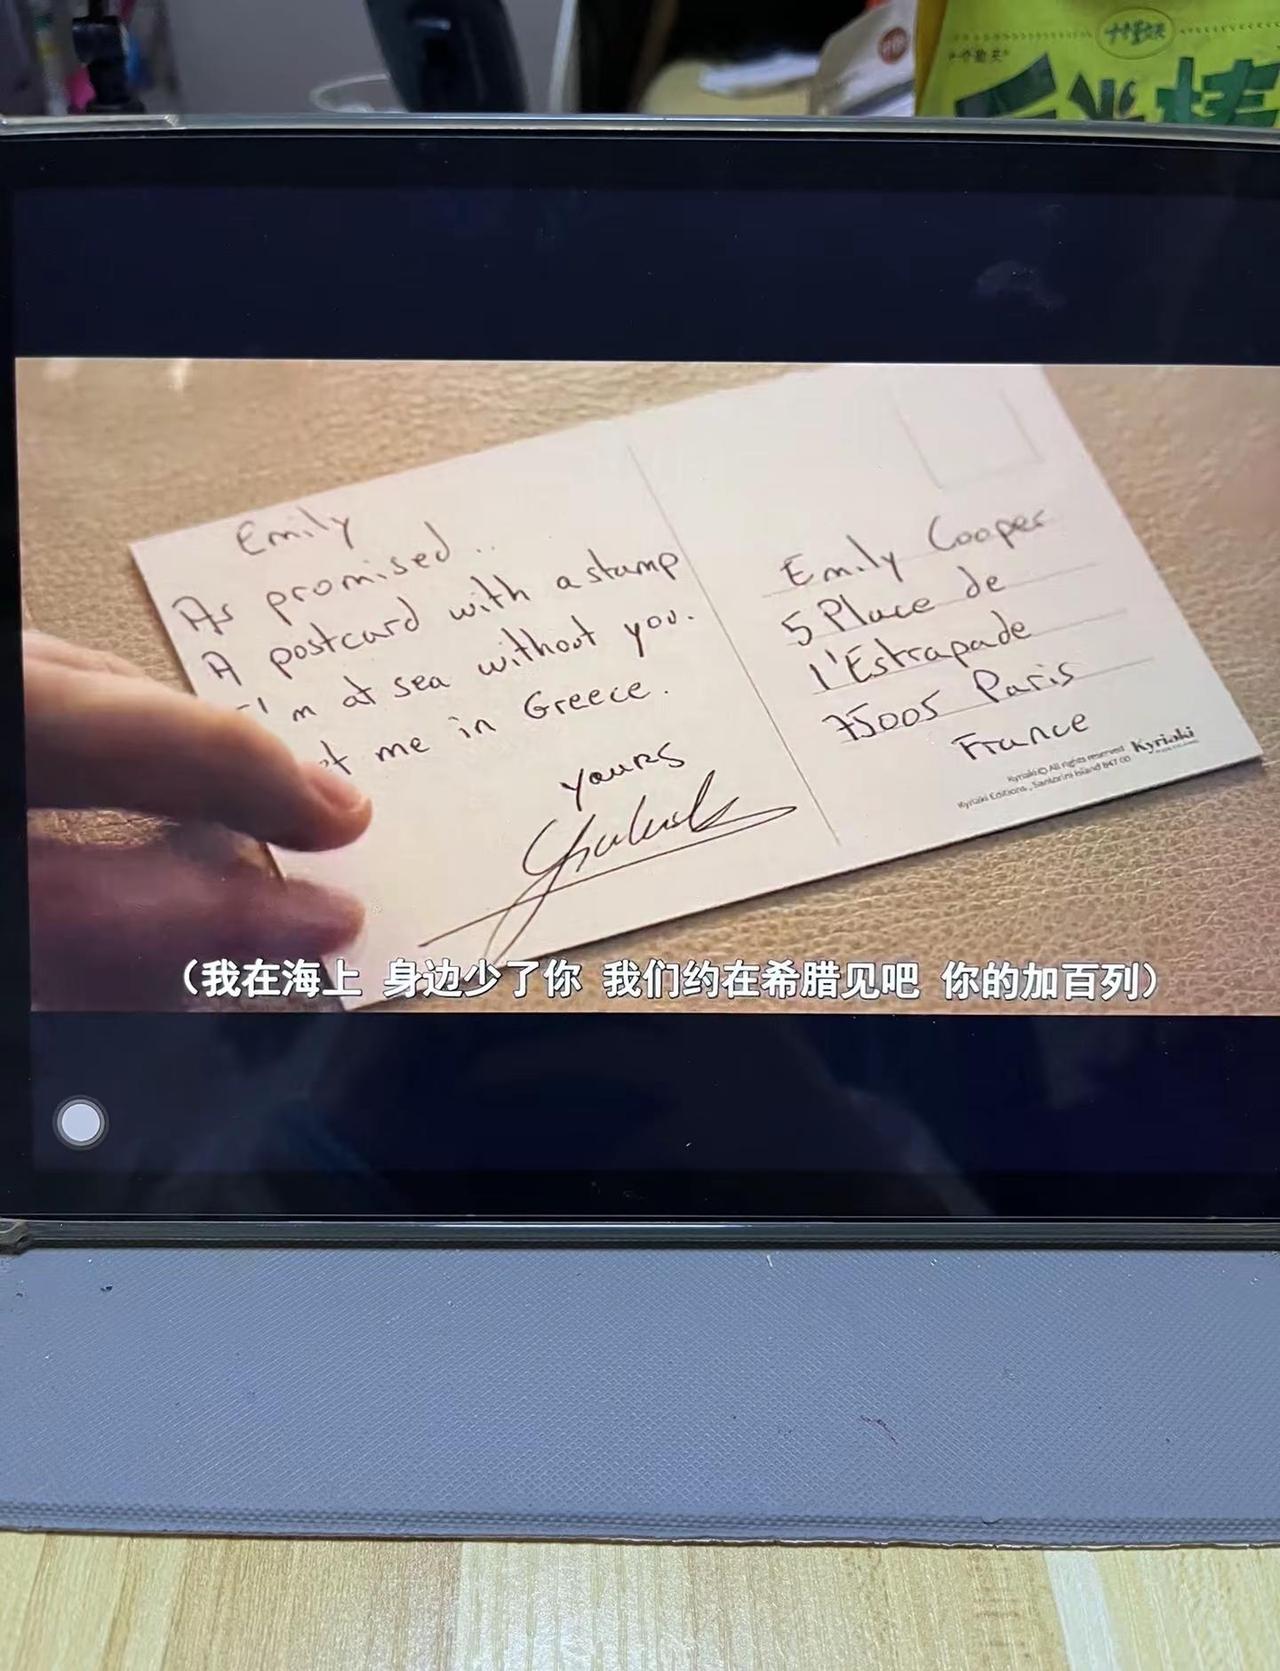 十月稻田
Emily
As promised..
A postcard with a stamp
I'm at sea without you.
me in Greece.
yours
Emily Cooper
5 Place de
l'Estrapade
75005 Paris
France
Kyriaki© All rights reserved Kyriaki
Kyriaki Editions, Santorini Island 847 00
(我在海上 身边少了你 我们约在希腊见吧 你的加百列)